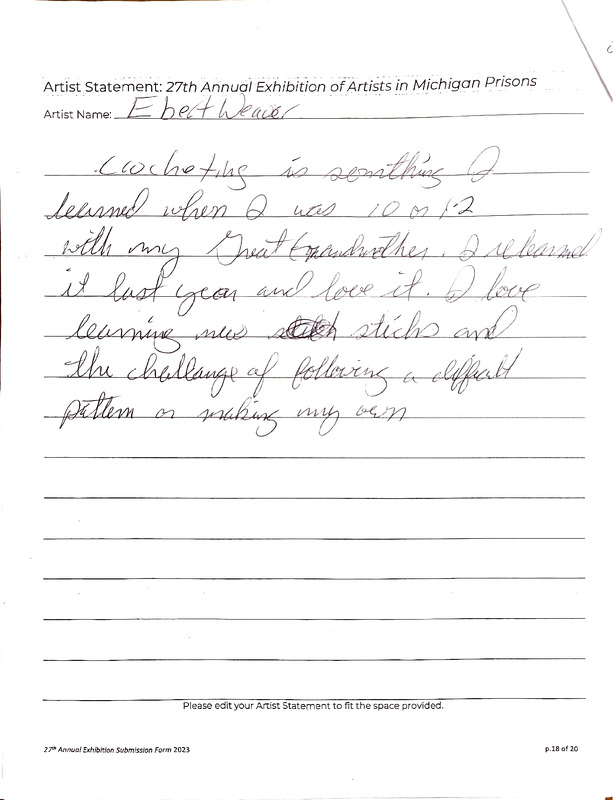 Artist Statement: 27th Annual Exhibition of Artists in Michigan Prisons
Artist Name: Ebert Weaver
Crocheting is somthing I
learned when I was 10 or 12
with my Great Grandmother. I relearned
it last year and love it. I love
learning new stichs and
the challange of following a difficult
pattern or making my own
Please edit your Artist Statement to fit the space provided.
27th Annual Exhibition Submission Form 2023
p.18 of 20